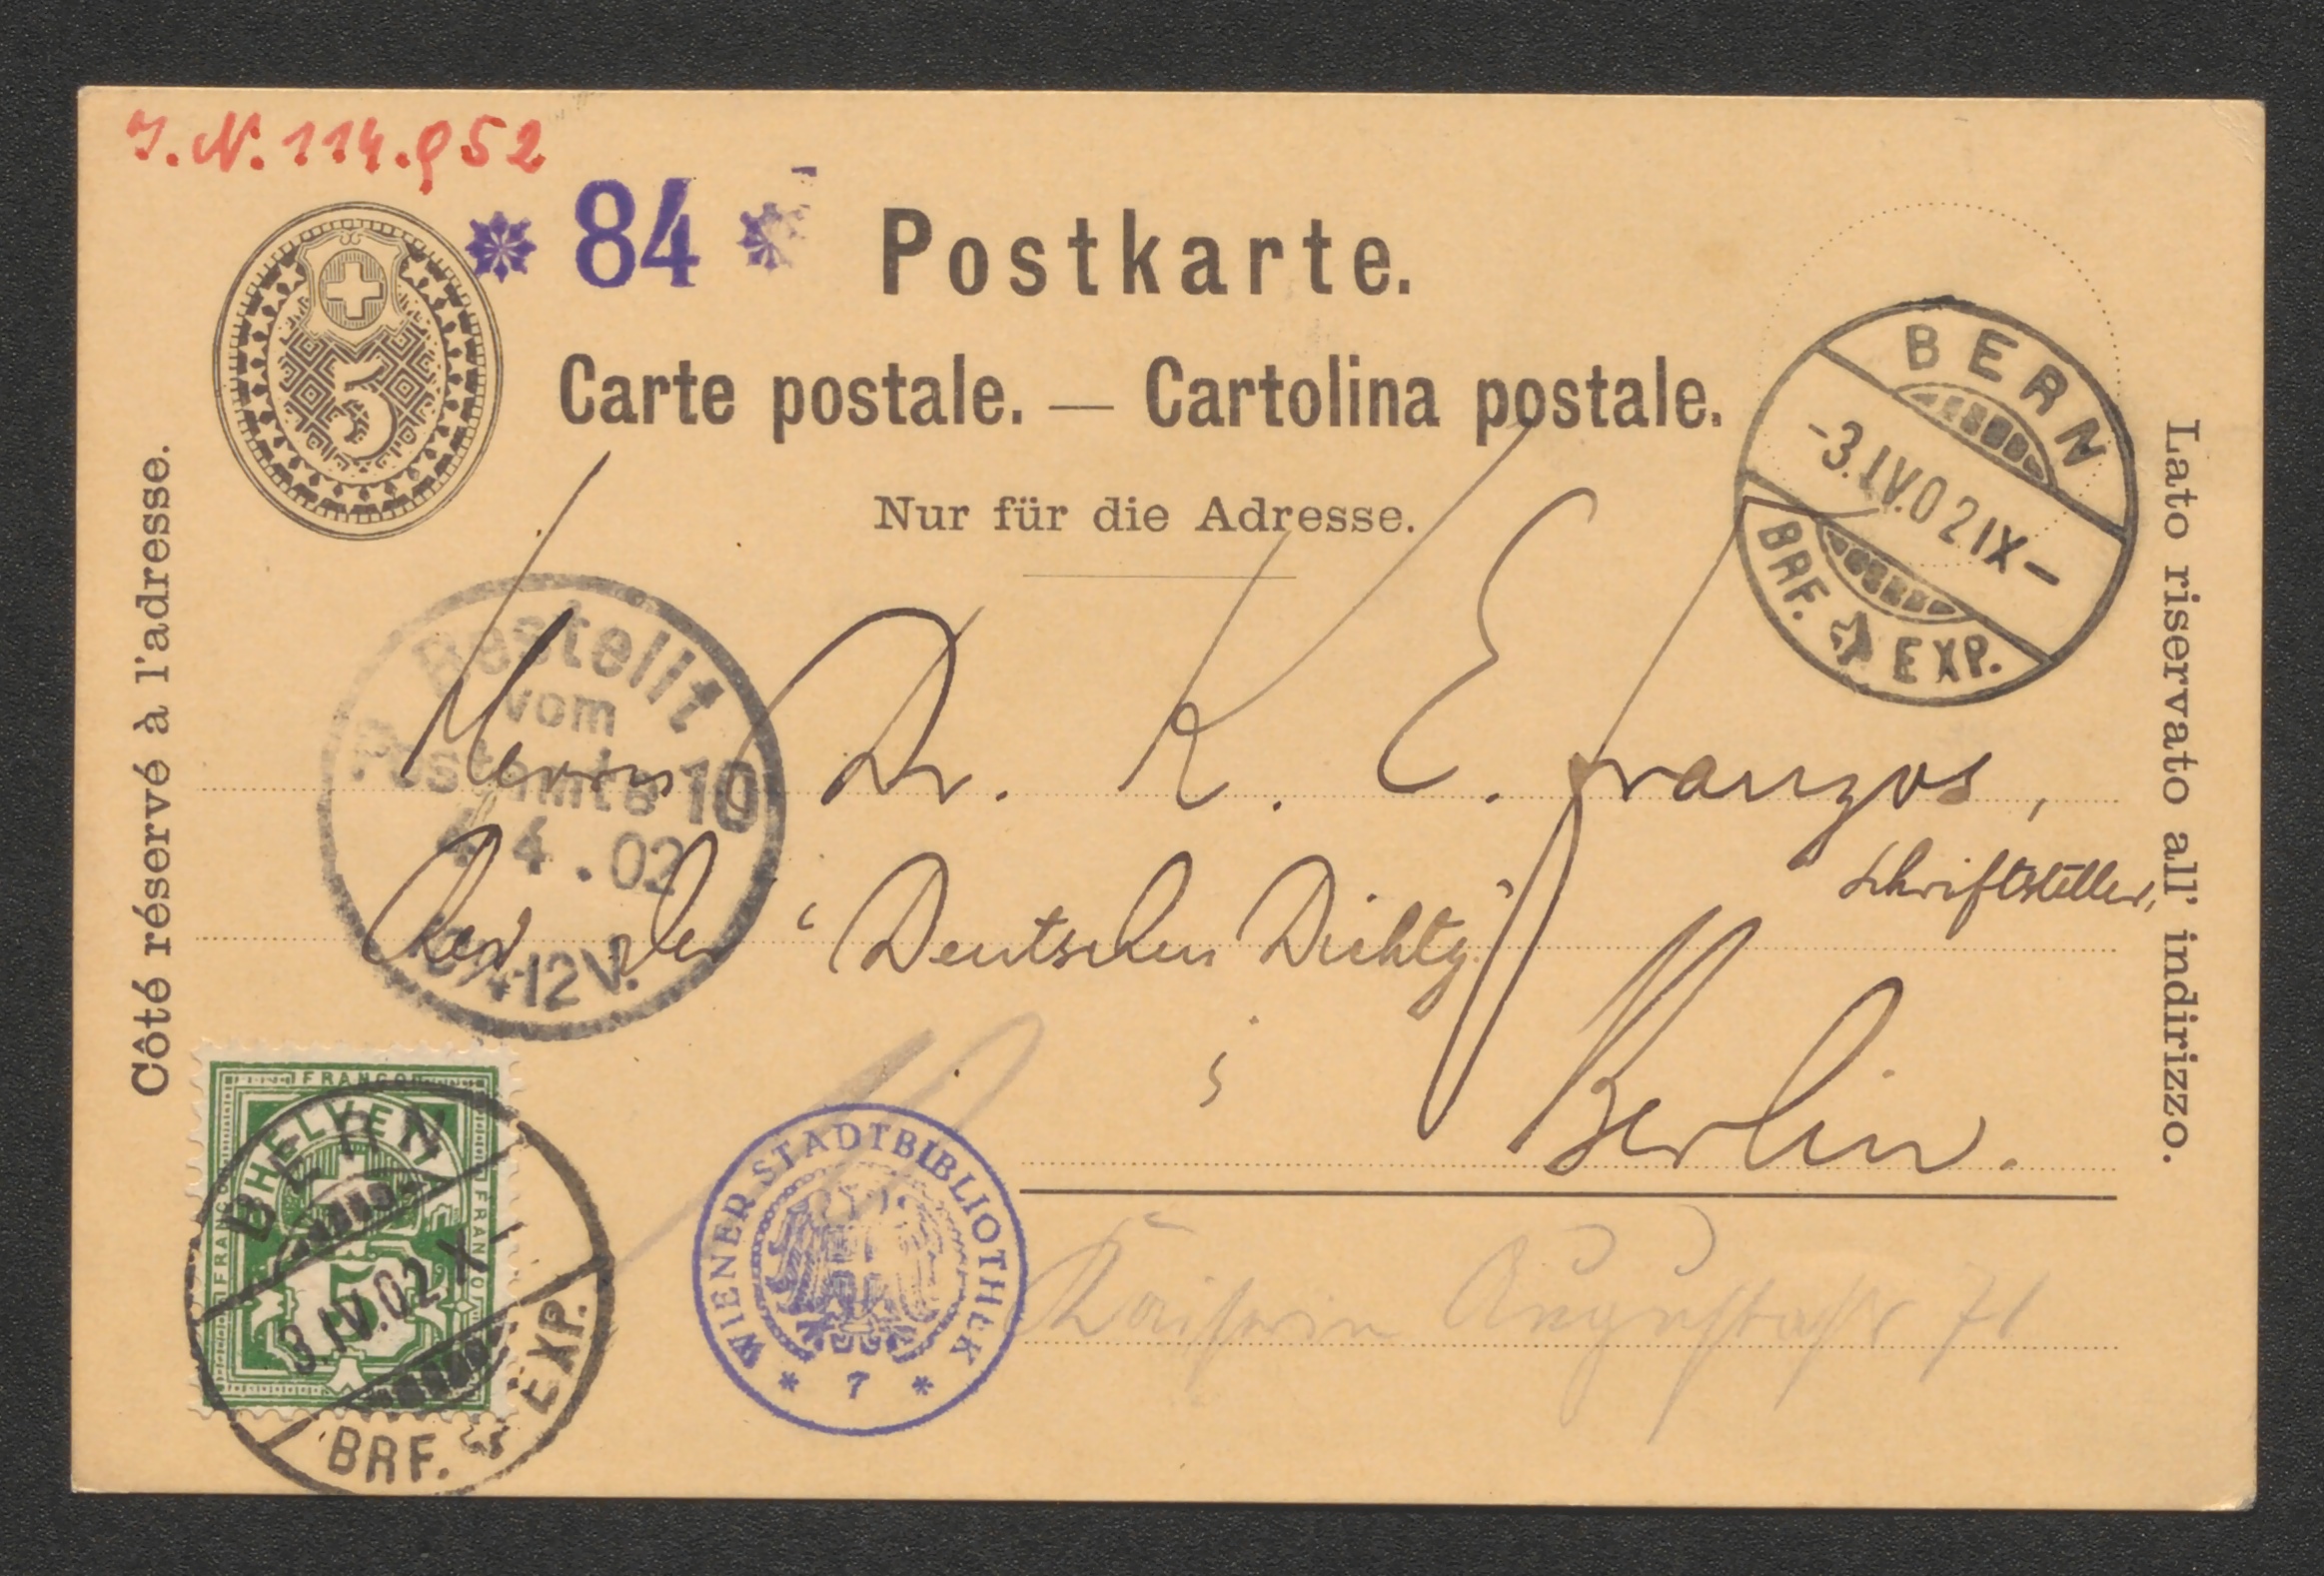 J.N. 114.952
* 84 *
Postkarte.
5
Carte postale. — Cartolina postale.
Nur für die Adresse.
Côté réservé à l'adresse.
Lato riservato all' indirizzo.
BERN
-3.IV.02 IX-
BRF. EXP.
Bestellt
vom
Postamte 10
4.4.02
12 V.
Herrn Dr. K. E. Franzos,
Schriftsteller,
Red der "Deutschen Dichtg"
Berlin.
FRANCO
HELVETIA
FRANCO
FRANCO
5
BERN
3.IV.02 X-
BRF. EXP.
WIENER STADTBIBLIOTHEK
* 7 *
Kaiserin Augustastr 71